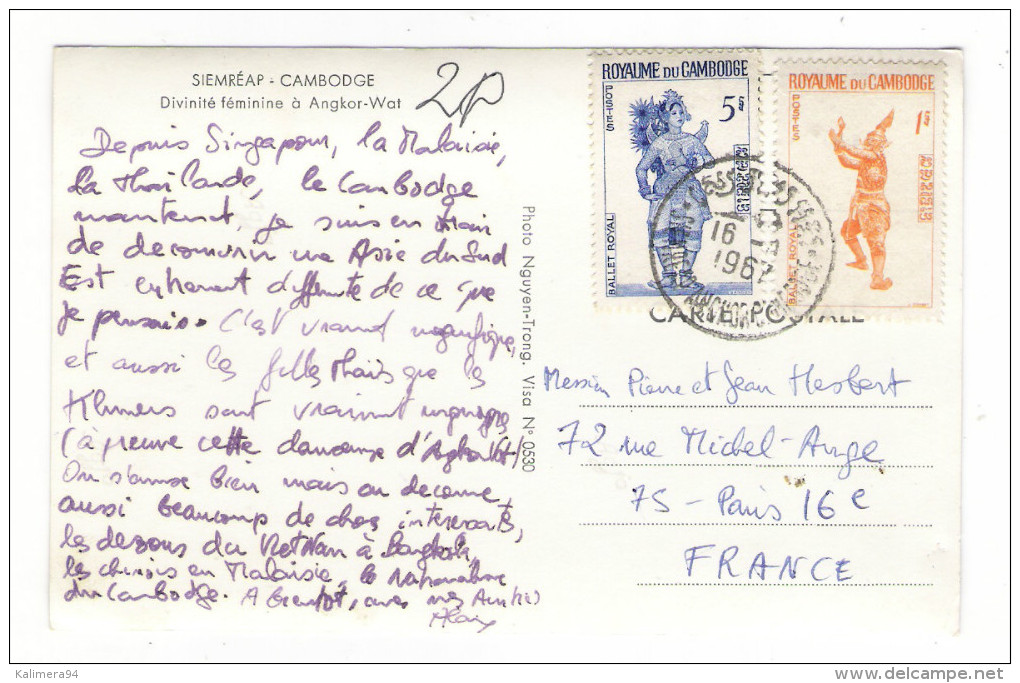 SIEMRÉAP - CAMBODGE
Divinité féminine à Angkor-Wat
2P
Depuis Singapour, la Malaisie,
la Thaïlande, le Cambodge
maintenant, je suis en train
de decouvrir une Asie du Sud
Est extrement differente de ce que
je pensais. C'est vraiment magnifique,
et aussi les filles Thaïs que les
Khmers sont vraiment
(à preuve cette danseuse d'Angkor Vat)
On s'amuse bien mais on decouvre,
aussi beaucoup de choses interessants,
les dessous du Vietnam à Bangkok,
les chinois en Malaisie, le nationalisme
du Cambodge. A bientot, avec mes Amitiés
Alain
Photo Nguyen-Trong. Visa N° 0530
ROYAUME DU CAMBODGE
POSTES
5
BALLET ROYAL
ROYAUME DU CAMBODGE
POSTES
1
BALLET ROYAL
16
1967
CARTE POSTALE
Messieurs Pierre et Jean Hesbert
72 rue Michel-Ange
75 - Paris 16e
FRANCE
Kalimera94
delcampe.net